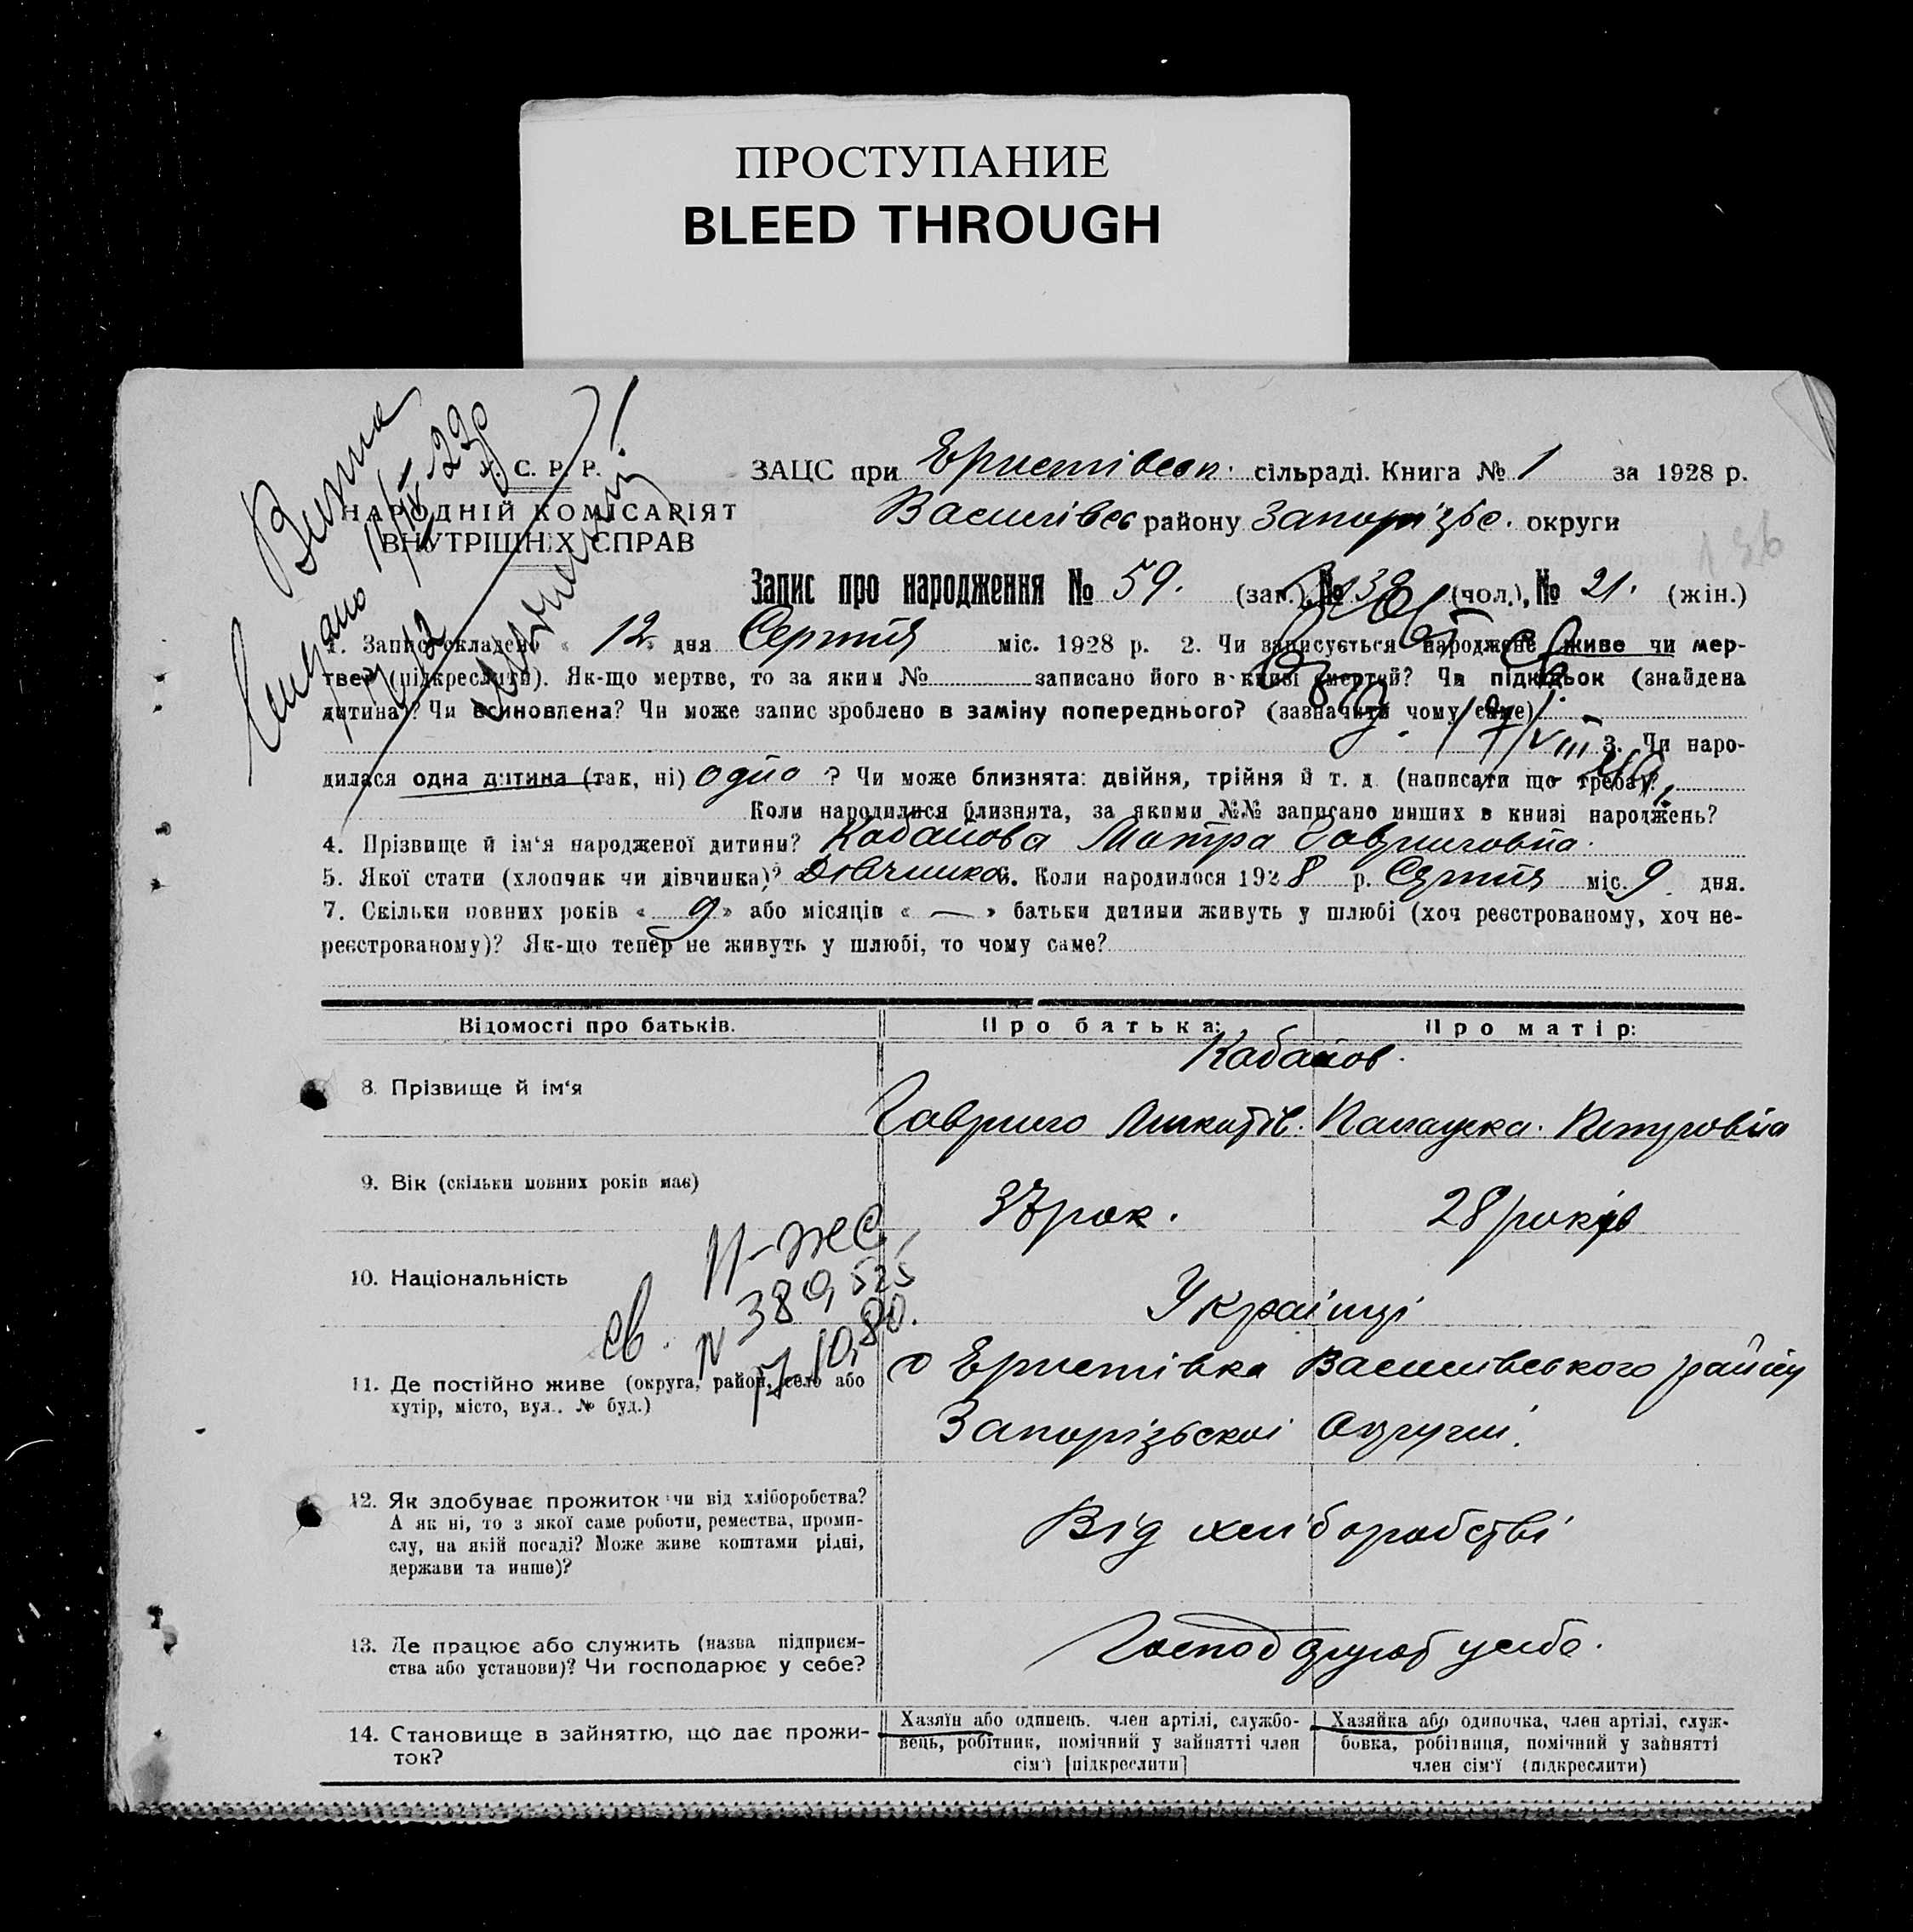 ПРОСТУПАНИЕ
BLEED THROUGH
С. Р. Р.
НАРОДНІЙ КОМІСАРІЯТ
ВНУТРІШНІХ СПРАВ
ЗАЦС при сільраді. Книга № 1 за 1928 р.
району округи
Запис про народження № 59. (заг.), № 38 (чол.), № 21. (жін.)
1. Запис складено « 12 » дня Серпня міс. 1928 р. 2. Чи записується народжене живе чи мер-
тве? (підкреслити). Як-що мертве, то за яким № записано його в книзі смертей? Чи підкидьок (знайдена
дитина)? Чи всиновлена? Чи може запис зроблено в заміну попереднього? (зазначити чому саме)
3. Чи наро-
дилася одна дитина (так, ні) одно ? Чи може близнята: двійня, трійня й т. д. (написати що треба)?
Коли народилися близнята, за якими №№ записано инших в книзі народжень?
4. Прізвище й ім'я народженої дитини? Кабанова Мотра Гавриловна.
5. Якої стати (хлопчик чи дівчинка)? Дівчинка 6. Коли народилося 1928 р. Серпня міс. 9 дня.
7. Скільки повних років « 9 » або місяців « — » батьки дитини живуть у шлюбі (хоч реєстрованому, хоч не-
реєстрованому)? Як-що тепер не живуть у шлюбі, то чому саме?
Відомості про батьків. Про батька: Про матір:
Кабанов.
8. Прізвище й ім'я
Гаврило Палажка. Петровна
9. Вік (скільки повних років має)
37 рок. 28 років
10. Національність
Українці
N 389525
11. Де постійно живе (округа, район, село або
хутір, місто, вул., № буд.)
Василівського району
Запорізської Округи.
12. Як здобуває прожиток: чи від хліборобства?
А як ні, то з якої саме роботи, ремества, проми-
слу, на якій посаді? Може живе коштами рідні,
держави та инше)?
Від хліборобстві
13. Де працює або служить (назва підприєм-
ства або установи)? Чи господарює у себе?
14. Становище в зайняттю, що дає прожи-
ток?
Хазяїн або одинець, член артілі, службо-
вець, робітник, помічний у зайнятті член
сім'ї [підкреслити]
Хазяйка або одиночка, член артілі, служ-
бовка, робітниця, помічний у зайнятті
член сім'ї (підкреслити)